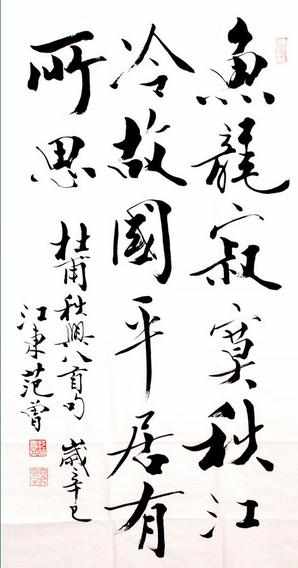 魚龍寂寞秋江
冷故國平居有
所思
杜甫秋興八首句 歲辛巳
江東范曾